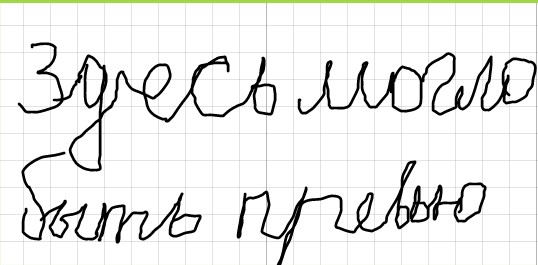 Здесь могло
быть превью